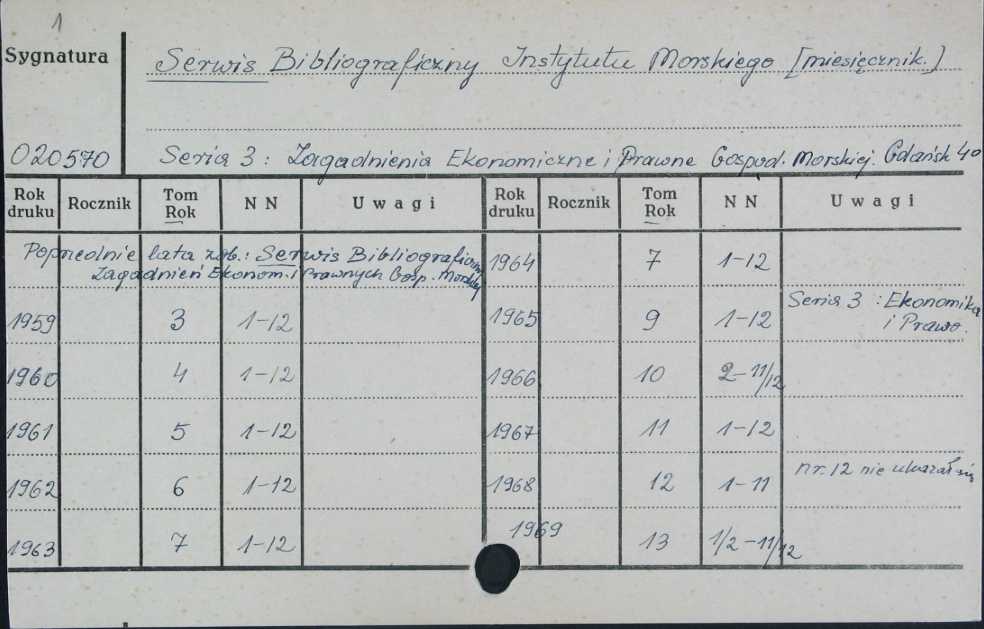 1
Sygnatura
Serwis Bibliograficzny Instytutu Morskiego [miesięcznik.]
020570
Seria 3: Zagadnienia Ekonomiczne i Prawne Gospod. Morskiej. Gdańsk 4º
Rok druku Rocznik Tom Rok NN Uwagi Rok druku Rocznik Tom Rok NN Uwagi
Poprzednie lata zob.: Serwis Bibliograficzny
Zagadnień Ekonom. i Prawnych Gosp. Morskiej
1964 7 1-12
1959 3 1-12 1965 9 1-12 Seria 3: Ekonomika
i Prawo.
1960 4 1-12 1966 10 2-11/12
1961 5 1-12 1967 11 1-12
1962 6 1-12 1968 12 1-11 nr. 12 nie ukazał się
1963 7 1-12 1969 13 1/2-11/12